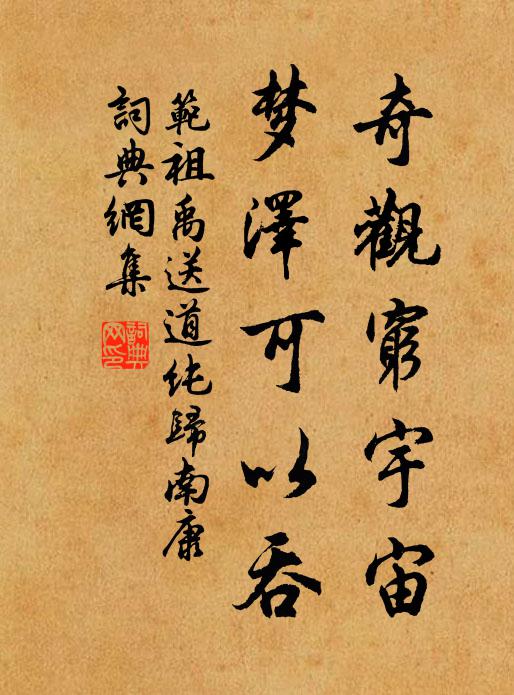 奇觀窮宇宙
梦澤可以吞
範祖禹送道純歸南康
詞典網集
詞典網印